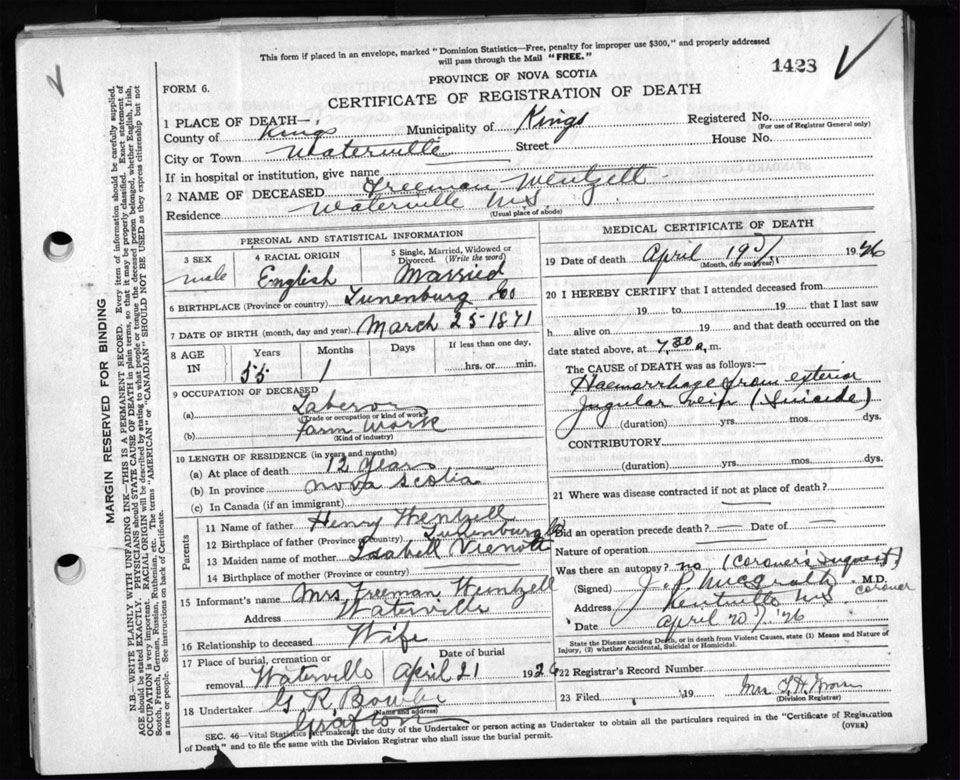 This form if placed in an envelope, marked "Dominion Statistics—Free, penalty for improper use $300," and properly addressed
will pass through the Mail "FREE."
1423
PROVINCE OF NOVA SCOTIA
FORM 6.
CERTIFICATE OF REGISTRATION OF DEATH
1 PLACE OF DEATH—
County of Kings Municipality of Kings Registered No.
(For use of Registrar General only)
City or Town Waterville Street House No.
If in hospital or institution, give name
2 NAME OF DECEASED Freeman Wentzell
Residence Waterville N.S
(Usual place of abode)
PERSONAL AND STATISTICAL INFORMATION
3 SEX male
4 RACIAL ORIGIN English
5 Single, Married, Widowed or Divorced. (Write the word) Married
6 BIRTHPLACE (Province or country) Lunenburg Co
7 DATE OF BIRTH (month, day and year) March 25-1871
8 AGE IN Years 55 Months 1 Days If less than one day, hrs. or min.
9 OCCUPATION OF DECEASED
(a) Laberor
(Trade or occupation or kind of work)
(b) Farm Work
(Kind of industry)
10 LENGTH OF RESIDENCE (in years and months)
(a) At place of death 12 Years
(b) In province Nova Scotia
(c) In Canada (if an immigrant)
Parents
11 Name of father Henry Wentzell
12 Birthplace of father (Province or country) Lunenburg Co
13 Maiden name of mother Isabell
14 Birthplace of mother (Province or country)
15 Informant's name Mrs Freeman Wentzell
Address Waterville
16 Relationship to deceased Wife
17 Place of burial, cremation or removal Waterville Date of burial April 21 1926
18 Undertaker G R
(Name and address)
Grafton
MEDICAL CERTIFICATE OF DEATH
19 Date of death April 19 1926
(Month, day and year)
20 I HEREBY CERTIFY that I attended deceased from
19 to 19 that I last saw
h alive on 19 and that death occurred on the
date stated above, at 7.30 a. m.
The CAUSE OF DEATH was as follows:—
Haemorrhage from exterior
Jugular vein (Suicide)
(duration) yrs. mos. dys.
CONTRIBUTORY.
(duration) yrs. mos. dys.
21 Where was disease contracted if not at place of death?
Did an operation precede death? — Date of —
Nature of operation
Was there an autopsy? no (Coroner's Inquest)
(Signed) J. P. McGrath M.D.
coroner
Address Kentville N.S
Date April 20 / 26
State the Disease causing Death, or in death from Violent Causes, state (1) Means and Nature of
Injury, (2) whether Accidental, Suicidal or Homicidal.
22 Registrar's Record Number
23 Filed 19 Mrs
(Division Registrar)
SEC. 46—Vital Statistics Act makes it the duty of the Undertaker or person acting as Undertaker to obtain all the particulars required in the "Certificate of Registration
of Death" and to file the same with the Division Registrar who shall issue the burial permit.
(OVER)
MARGIN RESERVED FOR BINDING
N.B.—WRITE PLAINLY WITH UNFADING INK—THIS IS A PERMANENT RECORD. Every item of information should be carefully supplied.
AGE should be stated EXACTLY. PHYSICIANS should STATE CAUSE OF DEATH in plain terms, so that it may be properly classified. Exact statement of
OCCUPATION is very important. RACIAL ORIGIN will be described by stating to what people or tongue the deceased person belonged, whether English, Irish,
Scotch, French, German, Russian, Ruthenian, etc. The terms "AMERICAN" or "CANADIAN" SHOULD NOT BE USED as they express citizenship but not
a race or people. See instructions on back of Certificate.